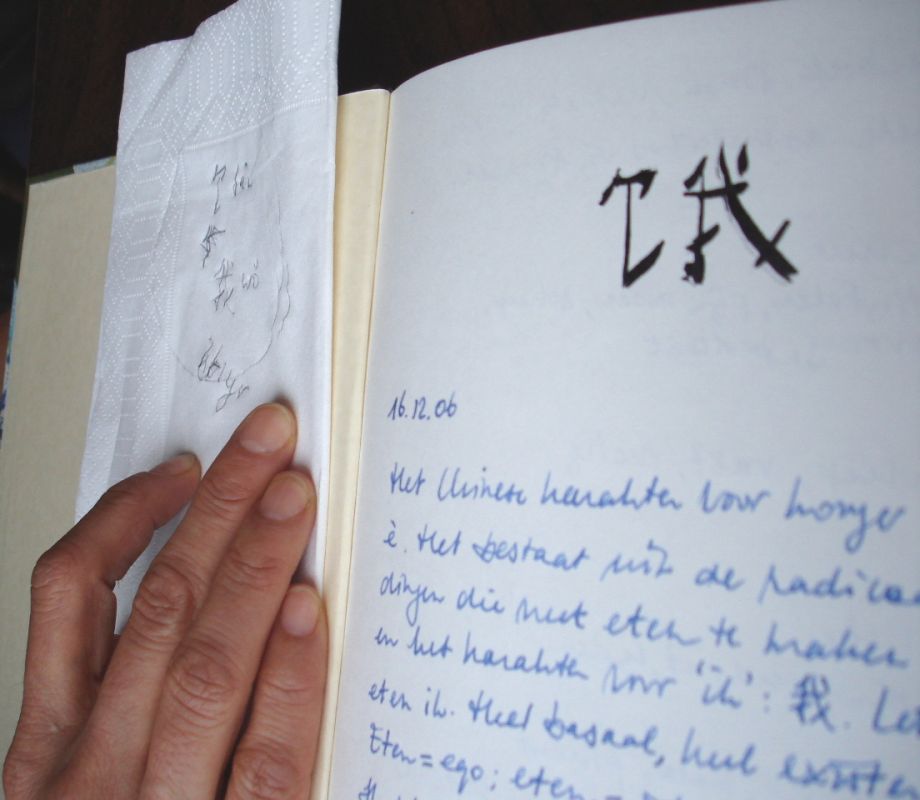 我
wǒ
饿
16.12.06
Het Chinese karakter voor honger
è. Het bestaat uit de radica
dingen die met eten te maken
en het karakter voor 'ik': 我. Let
eten ik. Heel basaal, heel existen
Eten = ego; eten =